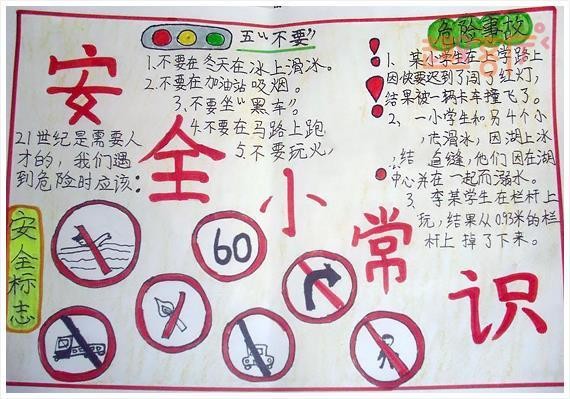 安全小常识
五“不要”
1.不要在冬天在冰上滑冰。
2.不要在加油站吸烟。
3.不要坐“黑车”。
4.不要在马路上跑
5.不要玩火,
21世纪是需要人
才的，我们遇
到危险时应该：
危险事故
1、某小学生在上学路上
因快要迟到了闯了红灯,
结果被一辆卡车撞飞了。
2、一小学生和另4个小
滑冰，因湖上冰
结 缝,他们因在湖
中心并在一起而溺水。
3、李某学生在栏杆上
玩，结果从0.93米的栏
杆上掉了下来。
安全标志
60